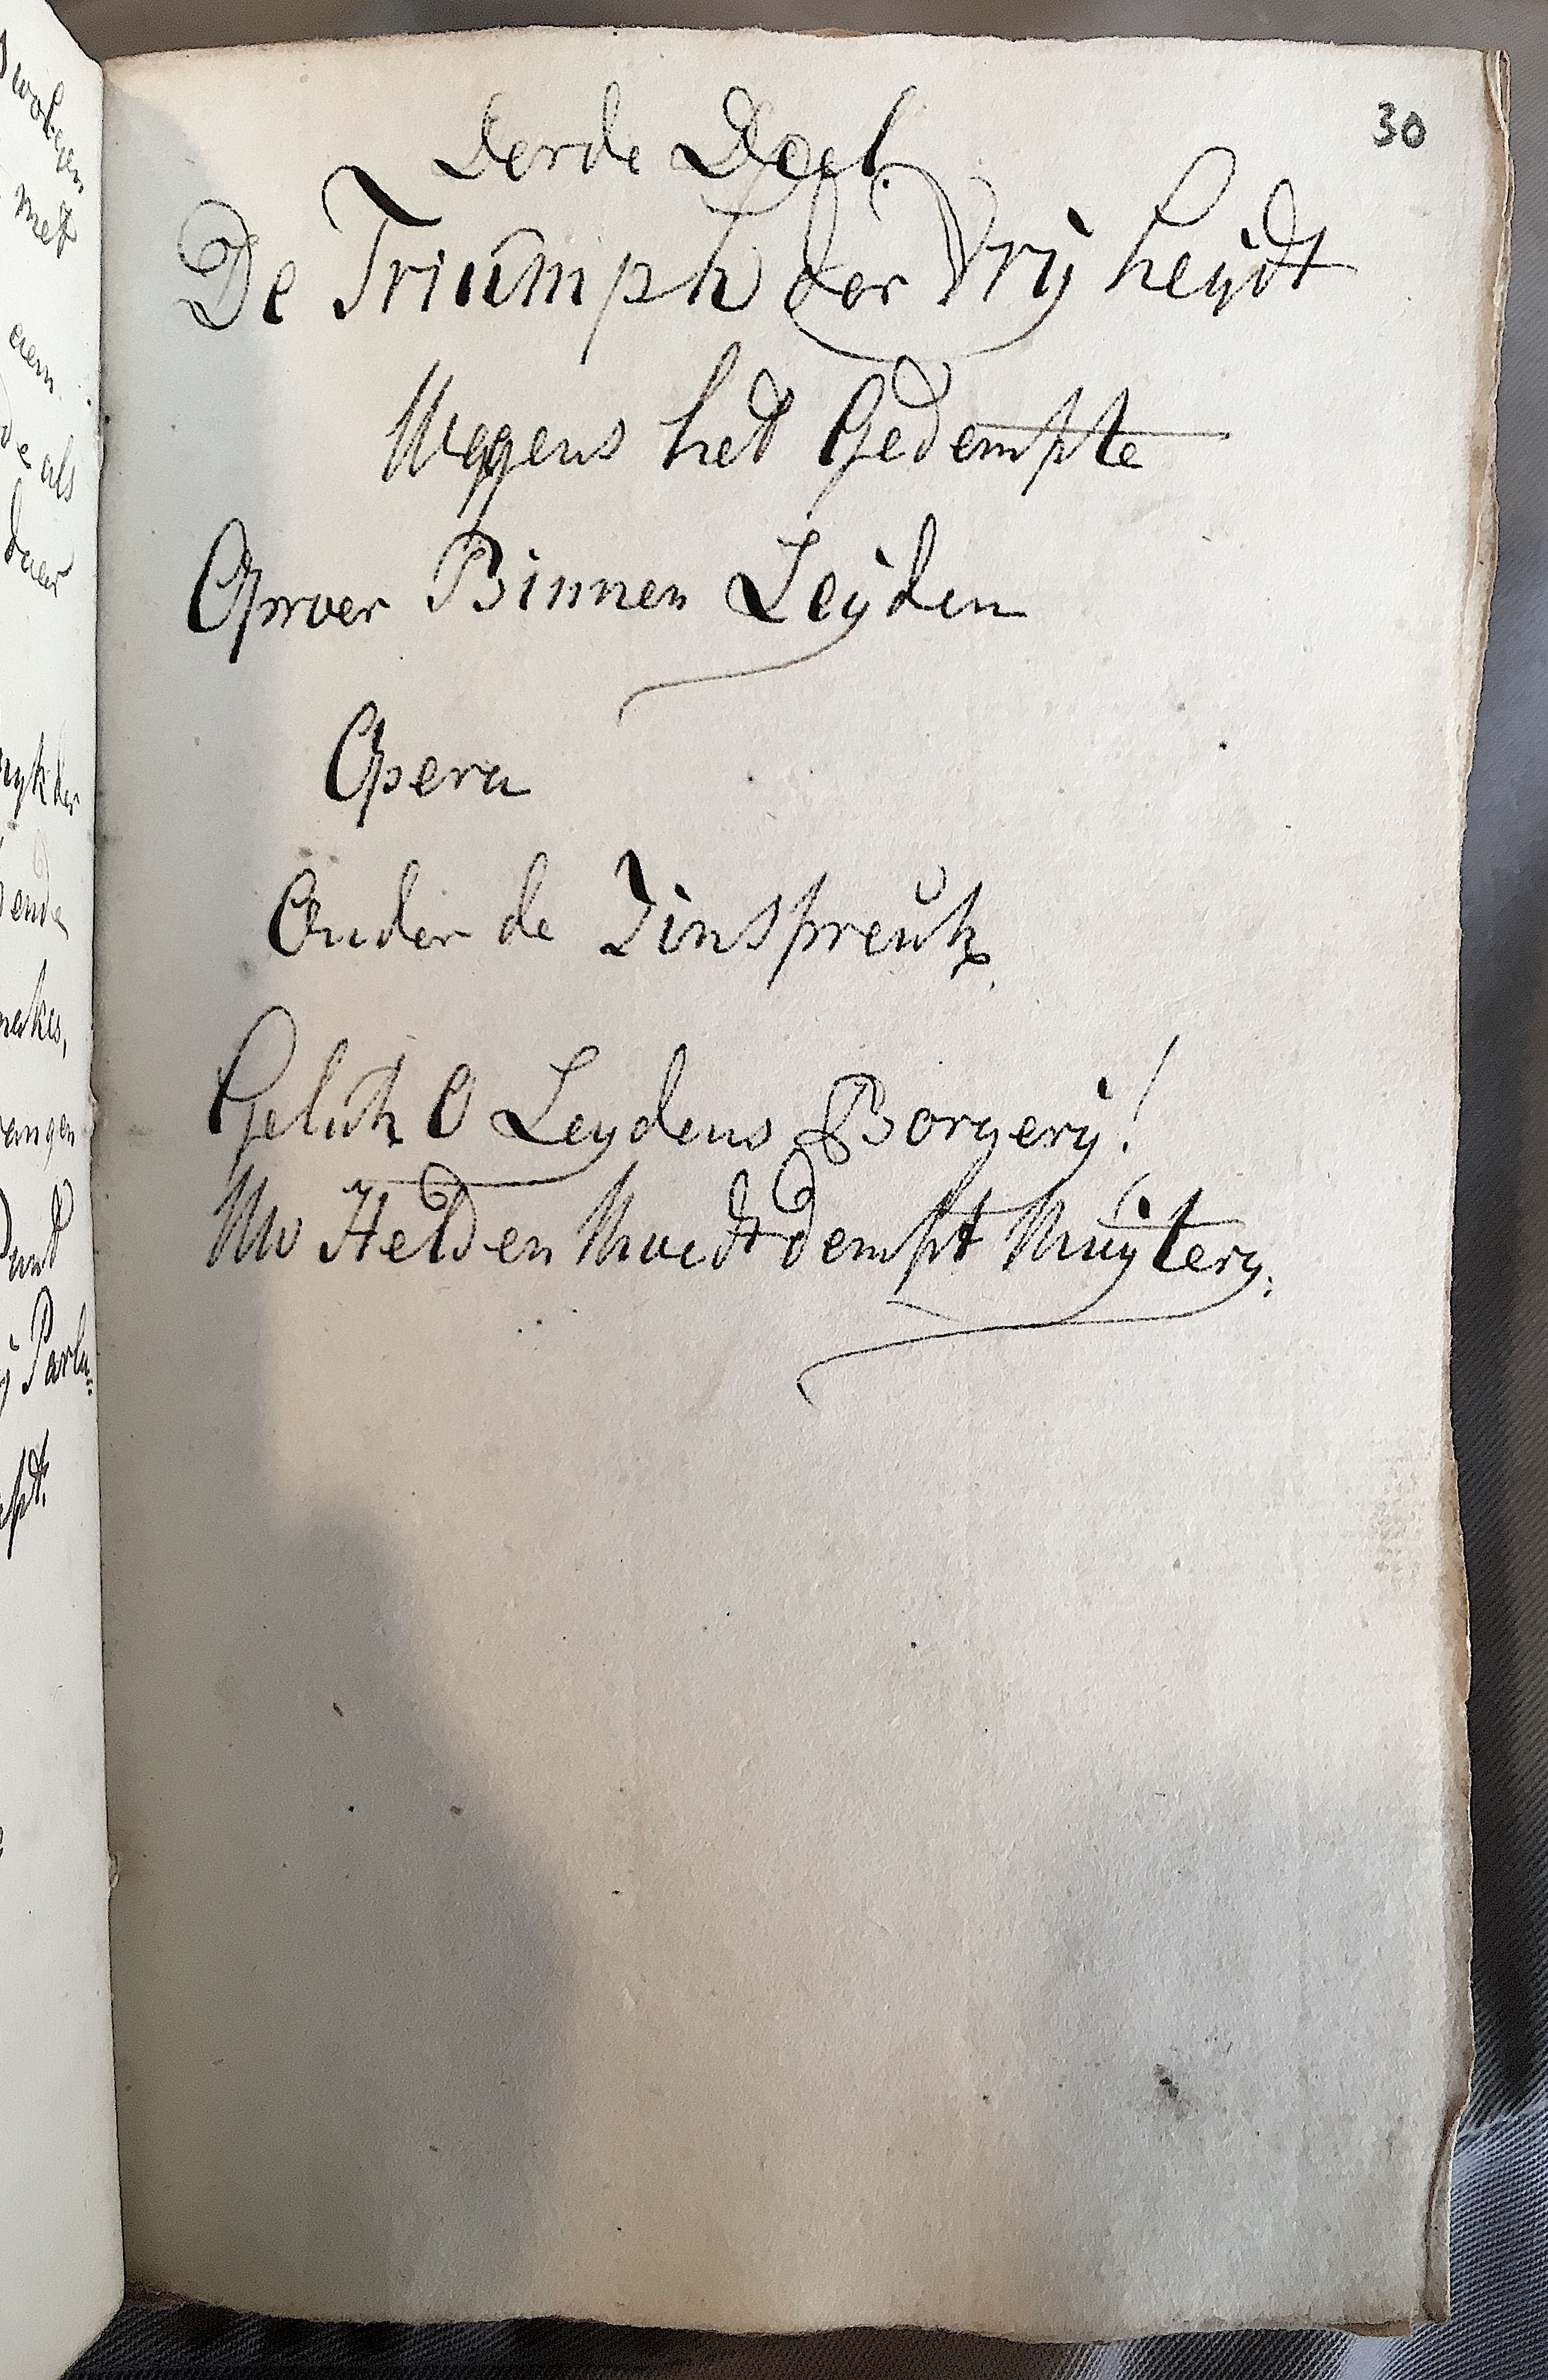 30
Derde Deel.
De Triumph der Vrijheydt
Weggens het Gedempte
Oproer Binnen Leijden
Opera
Onder de Zinspreuk.
Geluk O Leydens Borgerij!
Uw Helden Moedt dempt Muijterij.
wolgen
met
als
daer